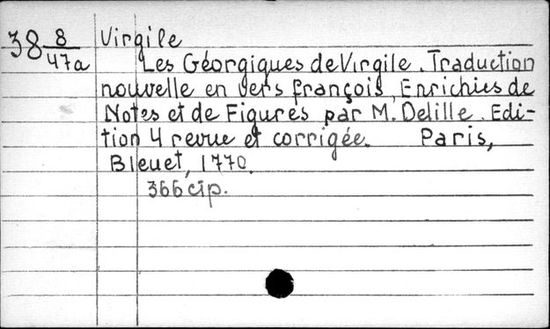 38 8/47a Virgile
Les Géorgiques de Virgile. Traduction
nouvelle en vers françois, Enrichies de
Notes et de Figures par M. Delille. Edi-
tion 4 revue et corrigée. Paris,
Bleuet, 1770.
366 стр.